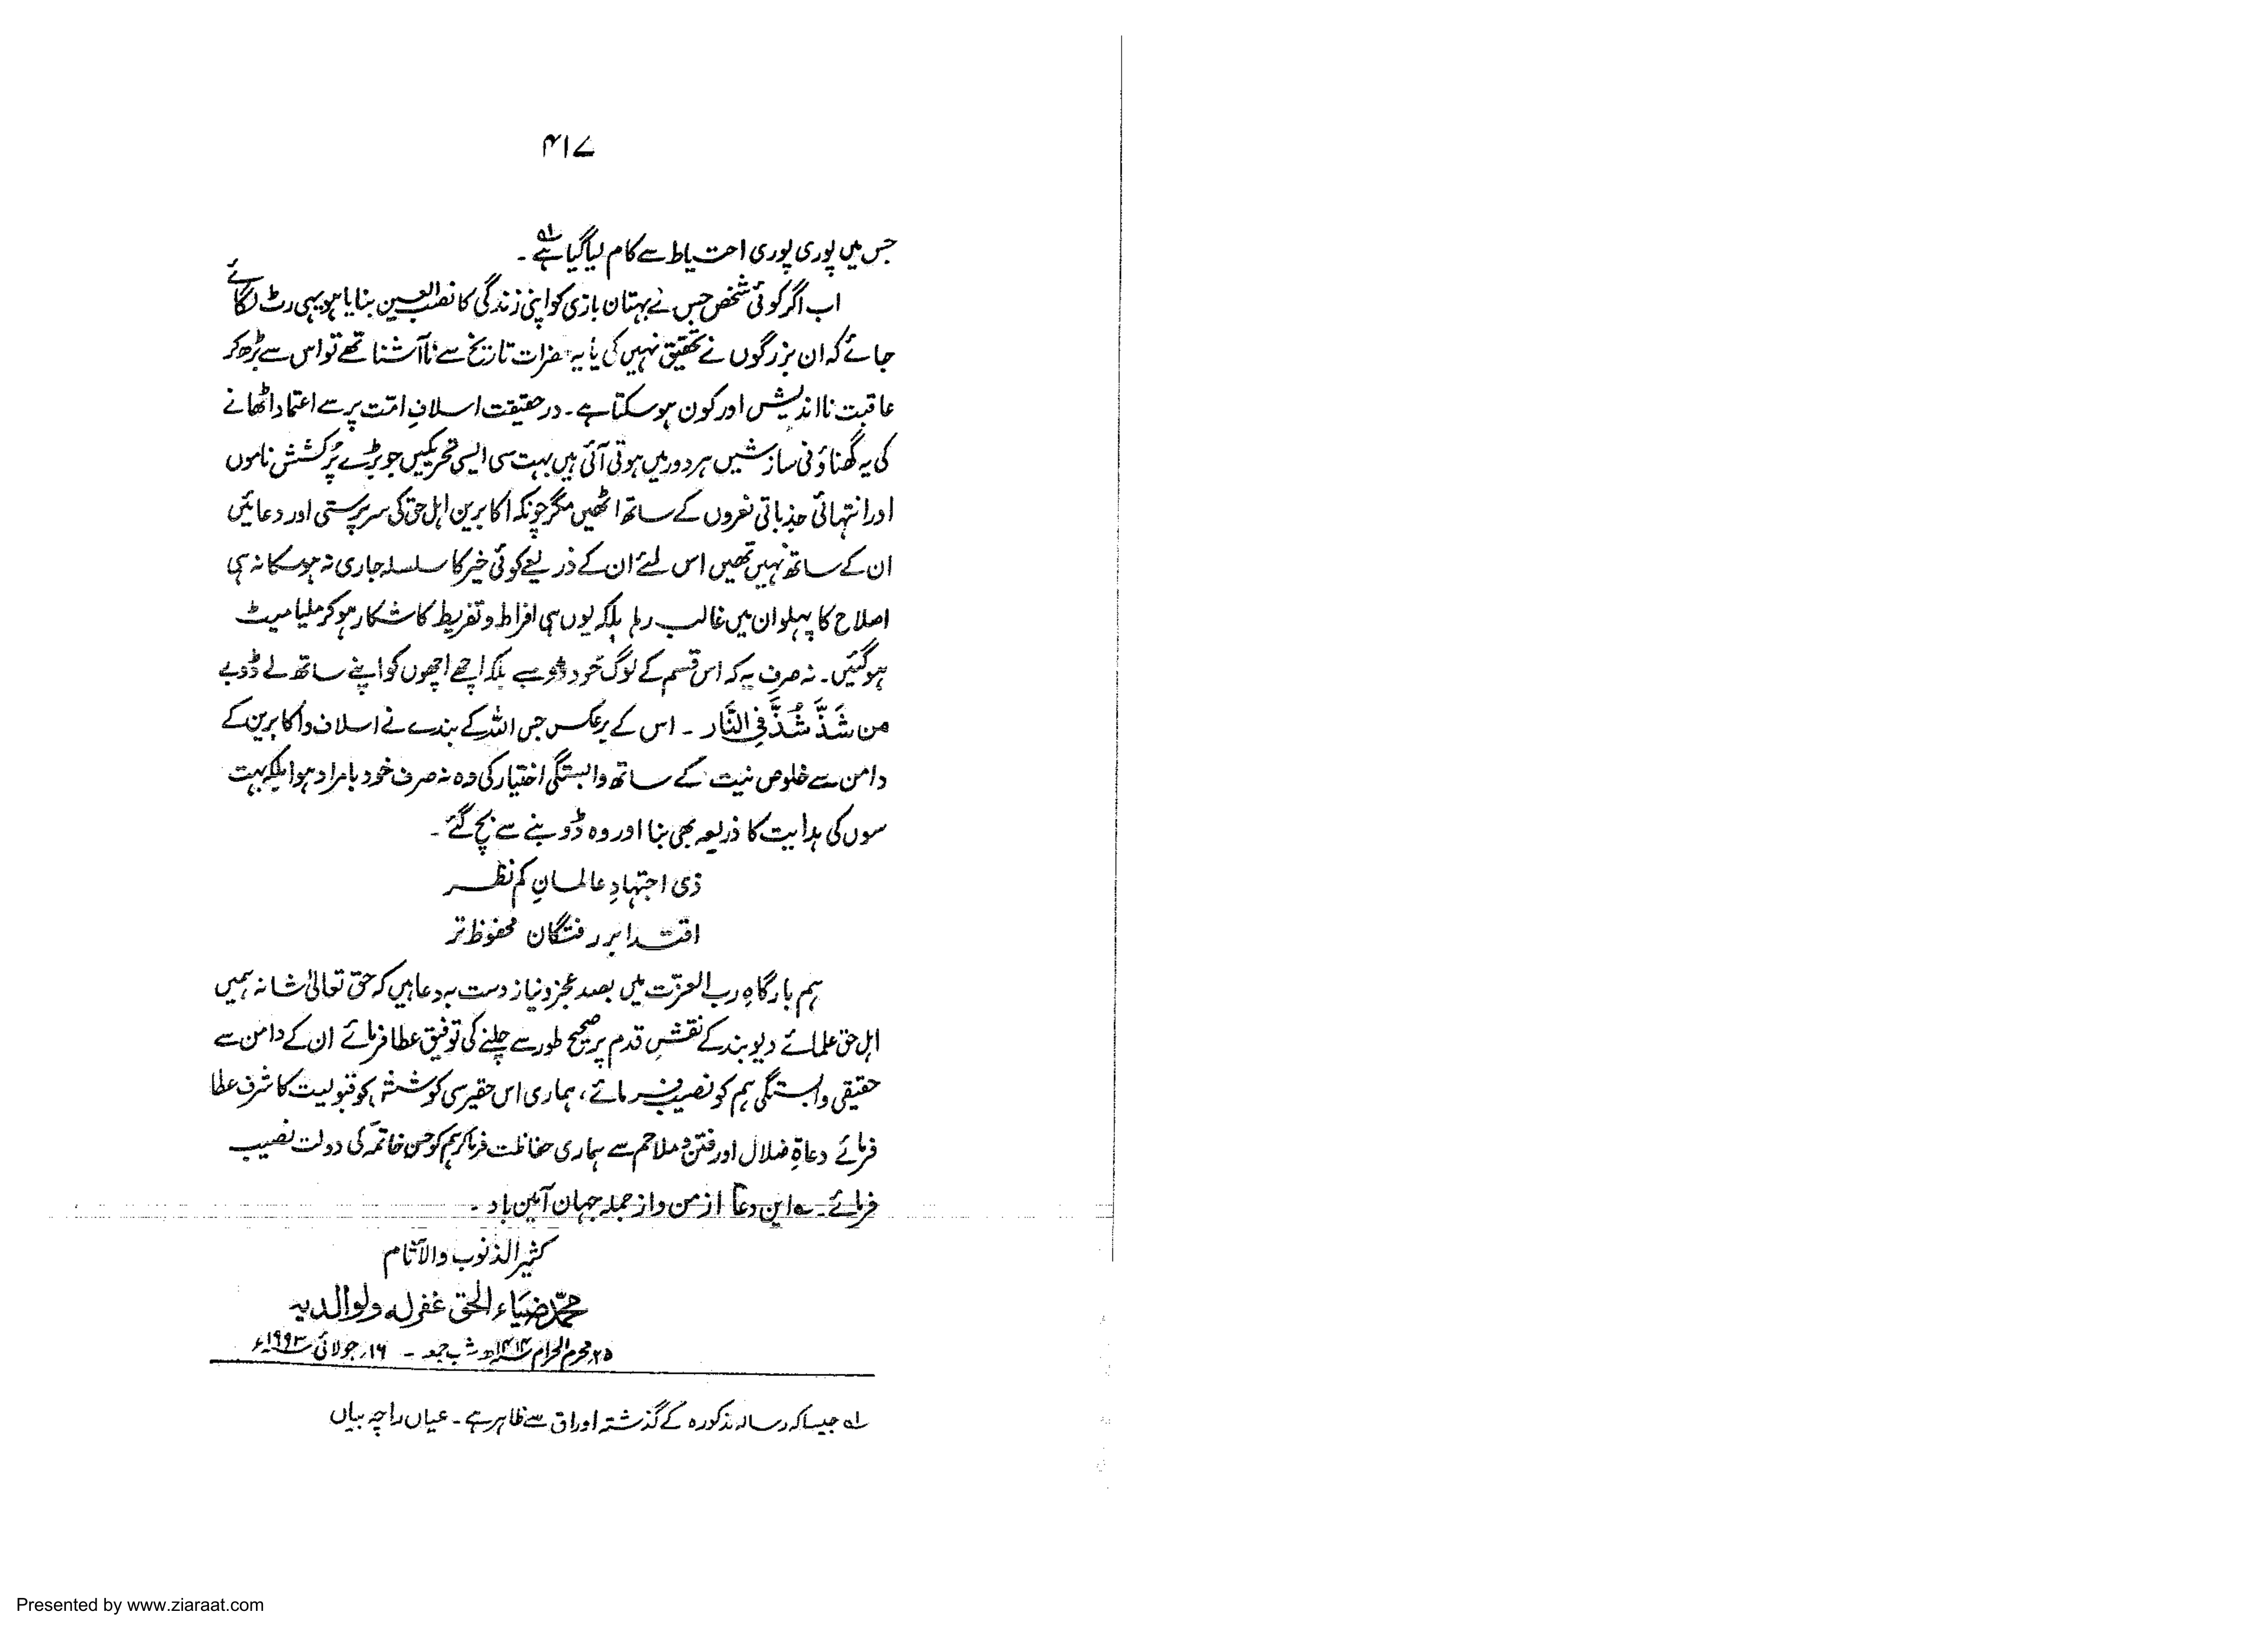 ۴۱۷
جس میں پوری پوری احتیاط سے کام لیا گیا ہے۔ ؎۱
اب اگر کوئی شخص جس نے بہتان بازی کو اپنی زندگی کا نصب العین بنایا ہو یہی رٹ لگائے
جائے کہ ان بزرگوں نے تحقیق نہیں کی یا یہ حضرات تاریخ سے ناآشنا تھے تو اس سے بڑھ کر
عاقبت نااندیش اور کون ہوسکتا ہے۔ درحقیقت اسلافِ امّت پر سے اعتماد اٹھانے
کی یہ گھناؤنی سازشیں ہر دور میں ہوتی آئی ہیں بہت سی ایسی تحریکیں جو بڑے پُرکشش ناموں
اور انتہائی جذباتی نعروں کے ساتھ اٹھیں مگر چونکہ اکابرین اہل حق کی سرپرستی اور دعائیں
ان کے ساتھ نہیں تھیں اس لئے ان کے ذریعے کوئی خیر کا سلسلہ جاری نہ ہوسکا نہ ہی
اصلاح کا پہلو ان میں غالب رہا بلکہ یوں ہی افراط و تفریط کا شکار ہوکر ملیامیٹ
ہوگئیں۔ نہ صرف یہ کہ اس قسم کے لوگ خود ڈوبے بلکہ اچھے اچھوں کو اپنے ساتھ لے ڈوبے
من شَذَّ شُذَّ فِی النَّار ۔ اس کے برعکس جس اللہ کے بندے نے اسلاف و اکابرین کے
دامن سے خلوص نیت کے ساتھ وابستگی اختیار کی وہ نہ صرف خود بامراد ہوا بلکہ بہت
سوں کی ہدایت کا ذریعہ بھی بنا اور وہ ڈوبنے سے بچ گئے۔
ذی اجتہادِ عالمانِ کم نظر
اقتدا بر رفتگان محفوظ تر
ہم بارگاہِ رب العزّت میں بصد عجز و نیاز دست بہ دعا ہیں کہ حق تعالیٰ شانہ ہمیں
اہل حق علمائے دیوبند کے نقشِ قدم پر صحیح طور سے چلنے کی توفیق عطا فرمائے ان کے دامن سے
حقیقی وابستگی ہم کو نصیب فرمائے، ہماری اس حقیر سی کوشش کو قبولیت کا شرف عطا
فرمائے دعاۃِ ضلال اور فتن و ملاحم سے ہماری حفاظت فرماکر ہم کو حسن خاتمہ کی دولت نصیب
فرمائے۔ ؎ این دعا از من و از جملہ جہان آمین باد ۔
کثیر الذنوب والآثام
محمّد ضیاء الحق غفرلہ ولوالدیہ
۲۵ محرم الحرام ۱۴۱۴ھ شب جمعہ ۔ ۱۶ جولائی ۱۹۹۳ء
؎۱ جیسا کہ رسالہ مذکورہ کے گذشتہ اوراق سے ظاہر ہے ۔ عیاں را چہ بیاں
Presented by www.ziaraat.com